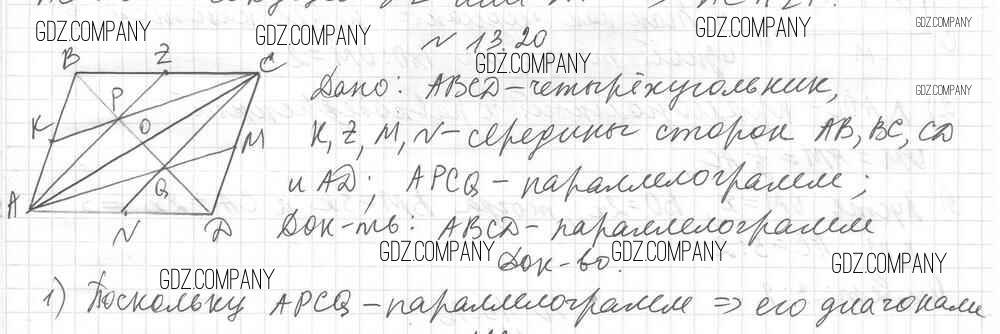 GDZ.COMPANY GDZ.COMPANY GDZ.COMPANY GDZ.COMPANY
N 13.20
GDZ.COMPANY
B Z C
Дано: ABCD – четырёхугольник, GDZ.COMPANY
P
K O M
K, Z, M, N – середины сторон AB, BC, CD
Q
и AD; APCQ – параллелограмм;
A N D
Док-ть: ABCD – параллелограмм
GDZ.COMPANY Док-во: GDZ.COMPANY GDZ.COMPANY
GDZ.COMPANY
1) Поскольку APCQ – параллелограмм => его диагонали